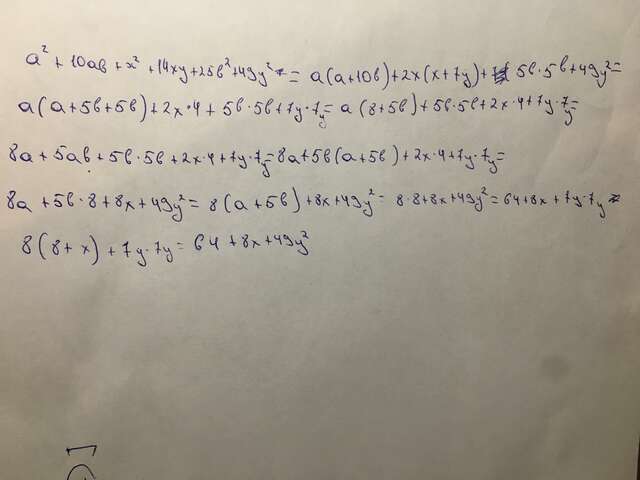 a² + 10ab + x² + 14xy + 25b² + 49y² = a(a+10b) + 2x(x+7y) + 5b·5b + 49y² =
a(a+5b+5b) + 2x·4 + 5b·5b + 7y·7y = a(8+5b) + 5b·5b + 2x·4 + 7y·7y =
8a + 5ab + 5b·5b + 2x·4 + 7y·7y = 8a + 5b(a+5b) + 2x·4 + 7y·7y =
8a + 5b·8 + 8x + 49y² = 8(a+5b) + 8x + 49y² = 8·8 + 8x + 49y² = 64 + 8x + 7y·7y =
8(8+x) + 7y·7y = 64 + 8x + 49y²